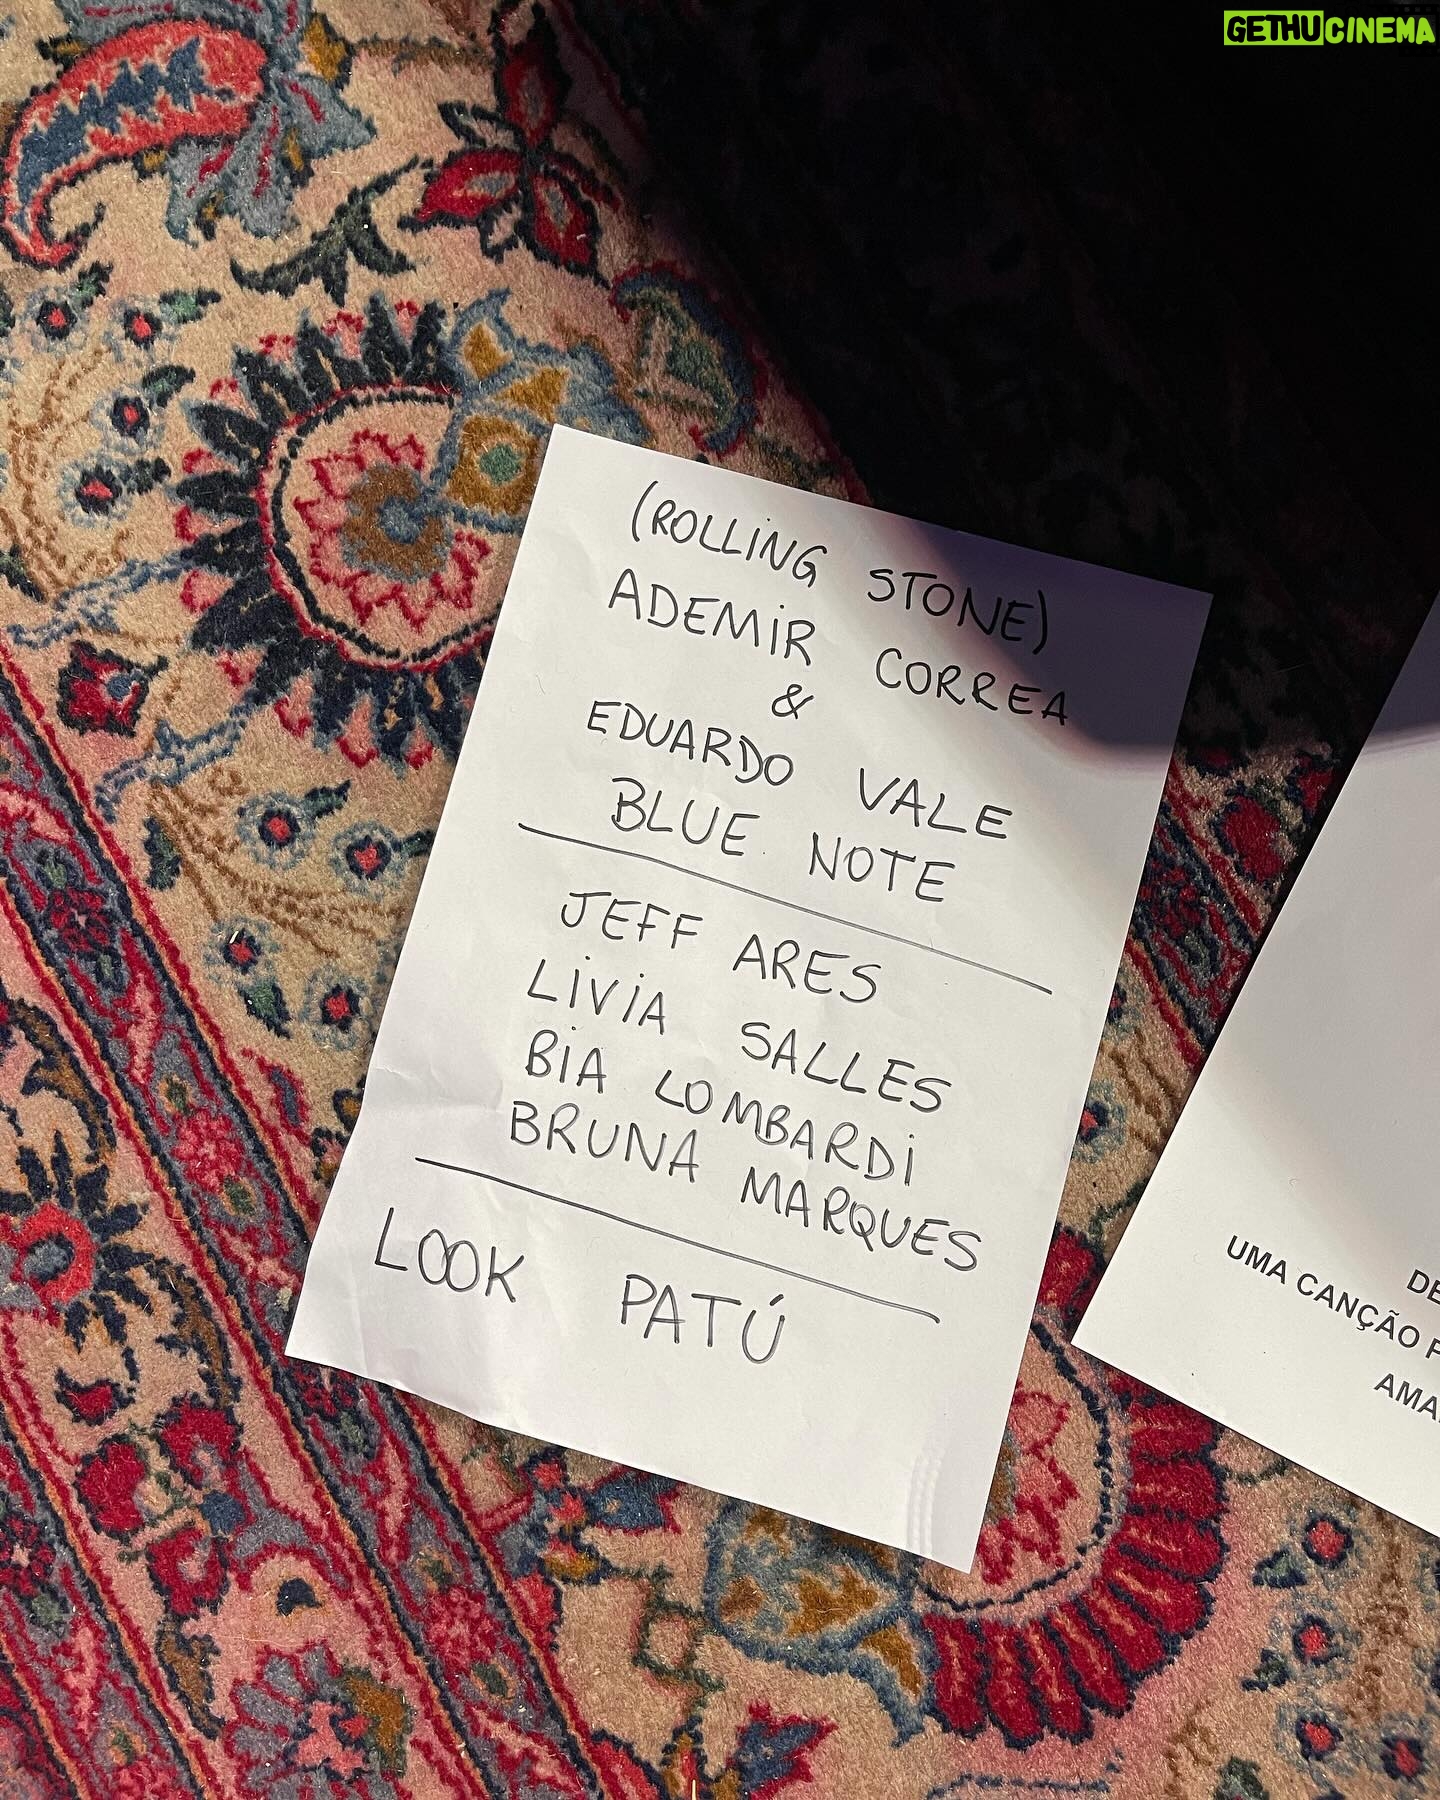 GETHUCINEMA
(ROLLING STONE)
ADEMIR CORREA
&
EDUARDO VALE
BLUE NOTE
JEFF ARES
LIVIA SALLES
BIA LOMBARDI
BRUNA MARQUES
LOOK PATÚ
DE
UMA CANÇÃO